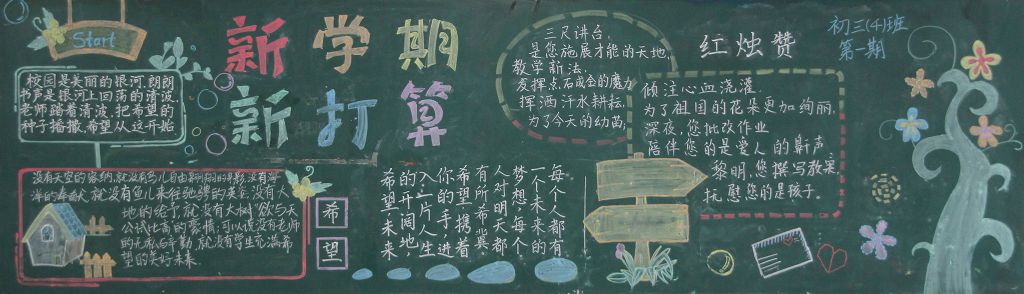 Start
新学期
新打算
校园是美丽的银河,朗朗
书声是银河上回荡的清波,
老师踏着清波,把希望的
种子播撒,希望从这开始
没有天空的容纳,就没有鸟儿自由翱翔的身影,没有海
洋的奉献,就没有鱼儿来往驰骋的英姿,没有大
地的给予就没有大树欲与天
公试比高的豪情;可以说没有老师
的无私的辛勤,就没有学生充满希
望的美好未来.
希
望
每个人都有
一个未来的
梦想,每个
人对明天都
有所希冀
希望携着
你的手,进
入一片人生
的开阔地,
希望·未来
三尺讲台,
是您施展才能的天地,
教学新法,
发挥点石成金的魔力
挥洒汗水耕耘,
为了今天的幼苗,
红烛赞
倾注心血浇灌.
为了祖国的花朵更加绚丽.
深夜,您批改作业
陪伴您的是爱人的鼾声
黎明,您撰写教案,
抚慰您的是孩子.
初三(4)班
第一期